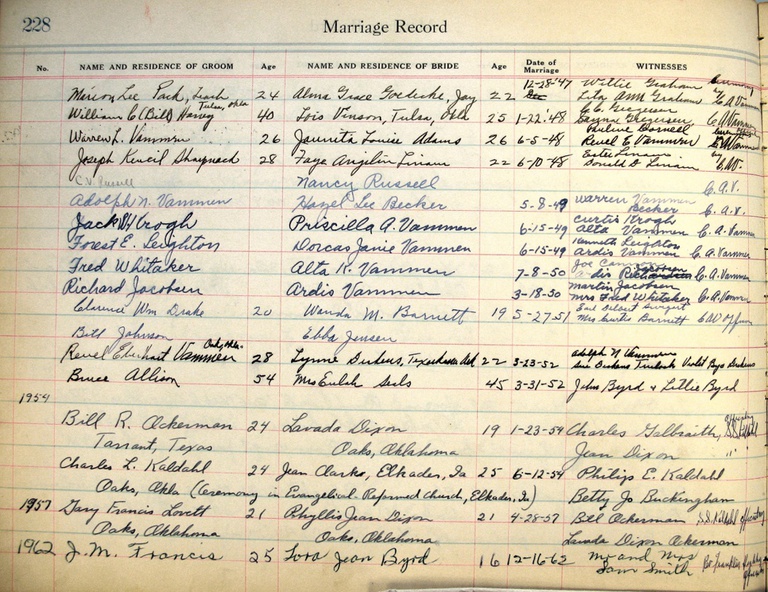 228
Marriage Record
No. NAME AND RESIDENCE OF GROOM Age NAME AND RESIDENCE OF BRIDE Age Date of Marriage WITNESSES
12-28-'47 Willie Graham
Lee Pack, 24 Alma Grace Goetcke, Jay 22 Lila Ann
Tulsa, Okla
William C (Bill) Harvey 40 Lois Vinson, Tulsa, Okla 25 1-22-'48 C. A. Vammen
Pauline Gosnell
Warren L. Vammen 26 Jaunita Louise Adams 26 6-5-48 Revel E Vammen
Joseph Kencil 28 Faye Angelin 22 6-10-48 Donald D
C.V. Russell Nancy Russell C. A. V.
Adolph N. Vammen Hazel Lee Becker 5-8-49 Warren Vammen
Becker C. A. V.
Curtis Krogh
Jack H Krogh Priscilla A. Vammen 6-15-49 Alta Vammen C. A. Vammen
Kenneth Leighton
Forest E. Leighton Dorcas Janie Vammen 6-15-49 Ardis Vammen C. A. Vammen
Fred Whitaker Alta K. Vammen 7-8-50 Ardis C. A. Vammen
Martin Jacobsen
Richard Jacobsen Ardis Vammen 3-18-50 Mrs Fred Whitaker C. A. Vammen
Clarence Wm Drake 20 Wanda M. Barnett 19 5-27-51 Mrs Barnett
Bill Johnson Ebba Jensen
Oaks, Okla.
Revel Eberhart Vammen 28 Lynne Dukens, 22 3-23-52 Adolph N Vammen
Bruce Allison 54 Mrs Eulah Seels 45 3-31-52 John Byrd & Lillie Byrd
1954
Bill R. Ackerman 24 Lavada Dixon 19 1-23-54 Charles Galbraith,
Tarrant, Texas Oaks, Oklahoma Jean Dixon
Charles L. Kaldahl 24 Jean Clarke, Elkader, Ia 25 6-12-54 Philip E. Kaldahl
Oaks, Okla (Ceremony in Evangelical Reformed Church, Elkader, Ia) Betty Jo Buckingham
1957 Gary Francis Lovett 21 Phyllis Jean Dixon 21 4-28-57 Bill Ackerman
Oaks, Oklahoma Oaks, Oklahoma Lavada Dixon Ackerman
1962 J. M. Francis 25 Lora Jean Byrd 16 12-16-62 Mr and Mrs
Sam Smith